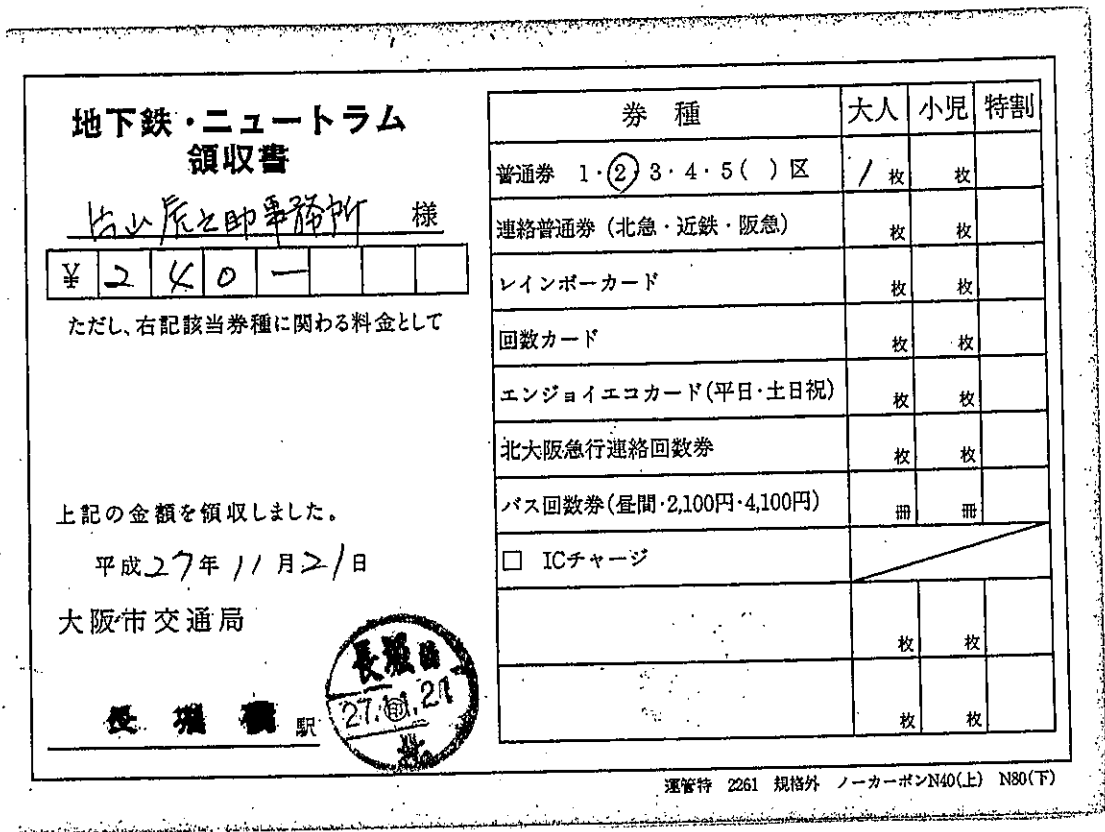 地下鉄・ニュートラム
領収書
片山虎之助事務所 様
¥240ー
ただし、右記該当券種に関わる料金として
上記の金額を領収しました。
平成27年11月21日
大阪市交通局
長堀橋駅
27.11.21
券種 大人 小児 特割
普通券 1・2・3・4・5( )区 1枚 枚
連絡普通券(北急・近鉄・阪急) 枚 枚
レインボーカード 枚 枚
回数カード 枚 枚
エンジョイエコカード(平日・土日祝) 枚 枚
北大阪急行連絡回数券 枚 枚
バス回数券(昼間・2,100円・4,100円) 冊 冊
□ ICチャージ
枚 枚
枚 枚
運管特 2261 規格外 ノーカーボンN40(上) N80(下)